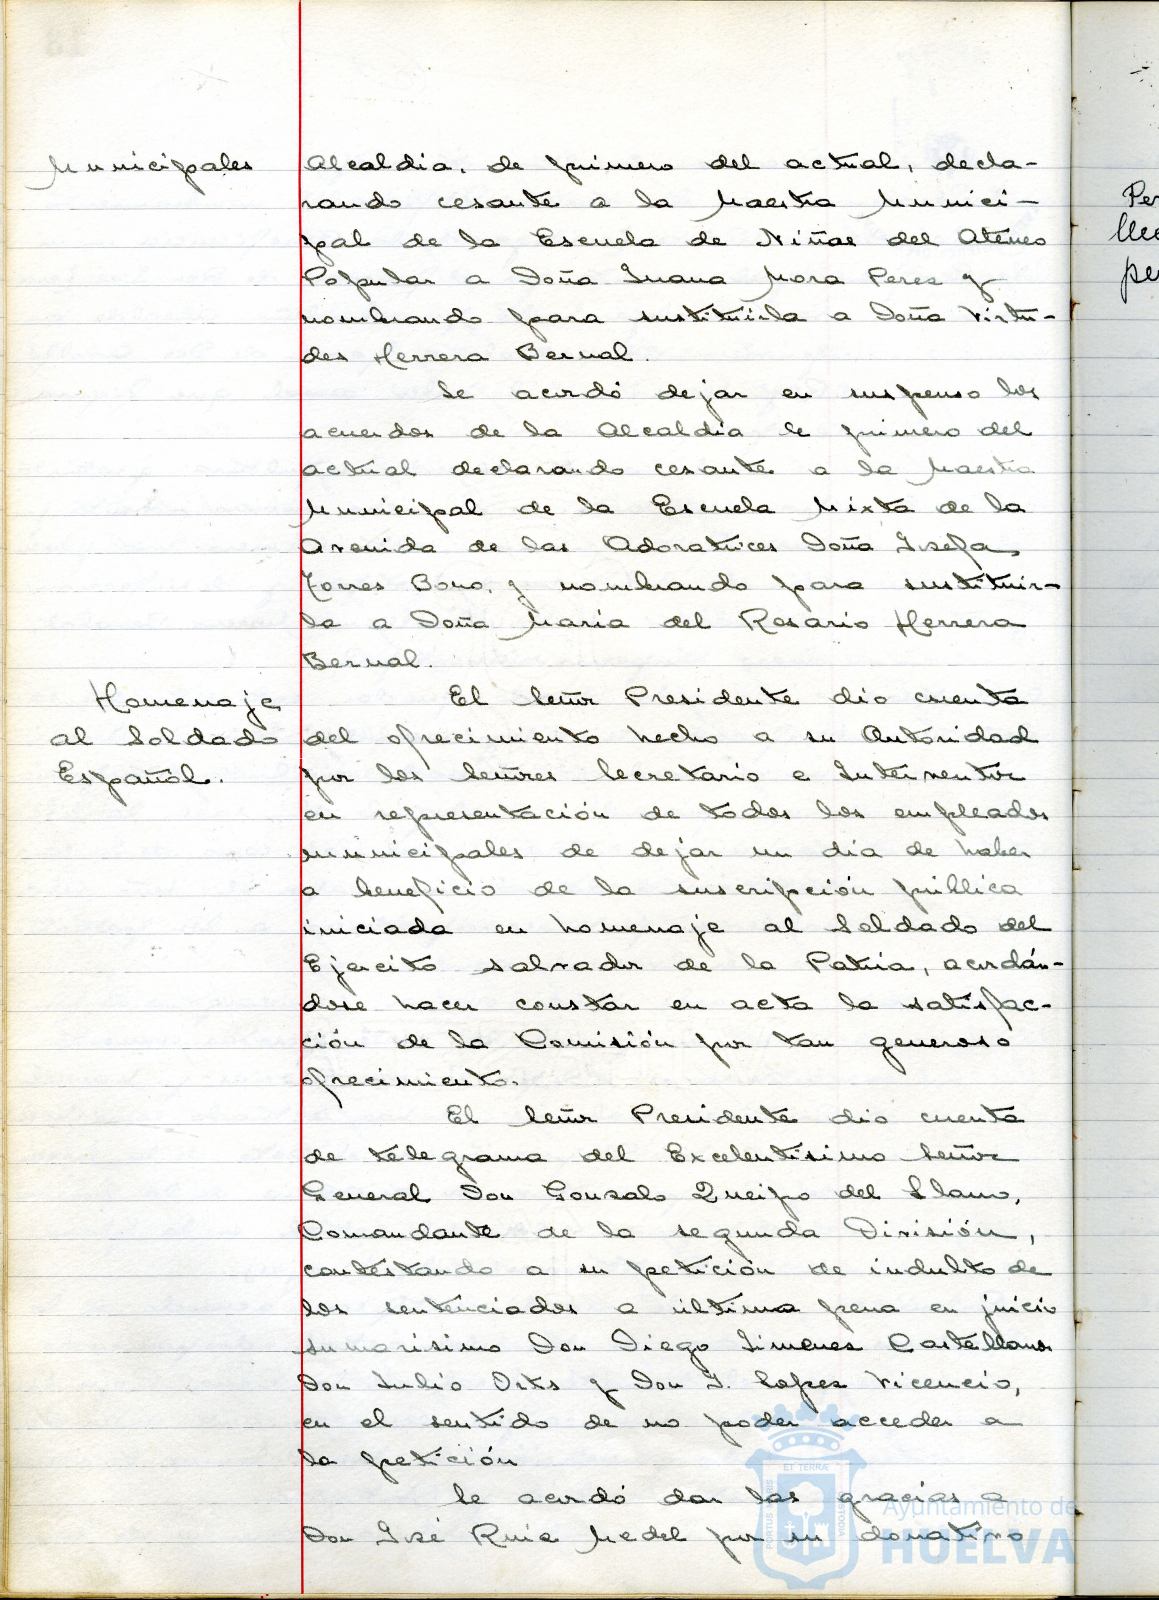 Municipales
Alcaldia, de primero del actual, decla-
rando cesante a la Maestra Munici-
pal de la Escuela de Niñas del Ateneo
Popular a Doña Juana Mora Peres y
nombrando para sustituirla a Doña Virtu-
des Herrera Bernal.
Se acordó dejar en suspenso los
acuerdos de la Alcaldia de primero del
actual declarando cesante a la Maestra
Municipal de la Escuela Mixta de la
Avenida de las Adoratrices Doña Josefa
Torres Bono, y nombrando para sustituir-
la a Doña Maria del Rosario Herrera
Bernal.
Homenaje
al Soldado
Español.
El Señor Presidente dio cuenta
del ofrecimiento hecho a su Autoridad
por los Señores Secretario e Interventor
en representación de todos los empleados
municipales de dejar un dia de haber
a beneficio de la suscripción pública
iniciada en homenaje al Soldado del
Ejercito salvador de la Patria, acordán-
dose hacer constar en acta la satisfac-
ción de la Comisión por tan generoso
ofrecimiento.
El Señor Presidente dio cuenta
de telegrama del Excelentisimo Señor
General Don Gonzalo Queipo del Llano,
Comandante de la segunda División,
contestando a su petición de indulto de
los sentenciados a última pena en juicio
sumarisimo Don Diego Jimenes Castellanos
Don Julio Orts y Don J. Lopes Vicencio,
en el sentido de no poder acceder a
la petición
Se acordó dar las gracias a
Don José Ruiz Medel por su donativo
Per
lleo
per
ET TERRÆ
PORTUS MARIS
CUSTODIA
Ayuntamiento de
HUELVA